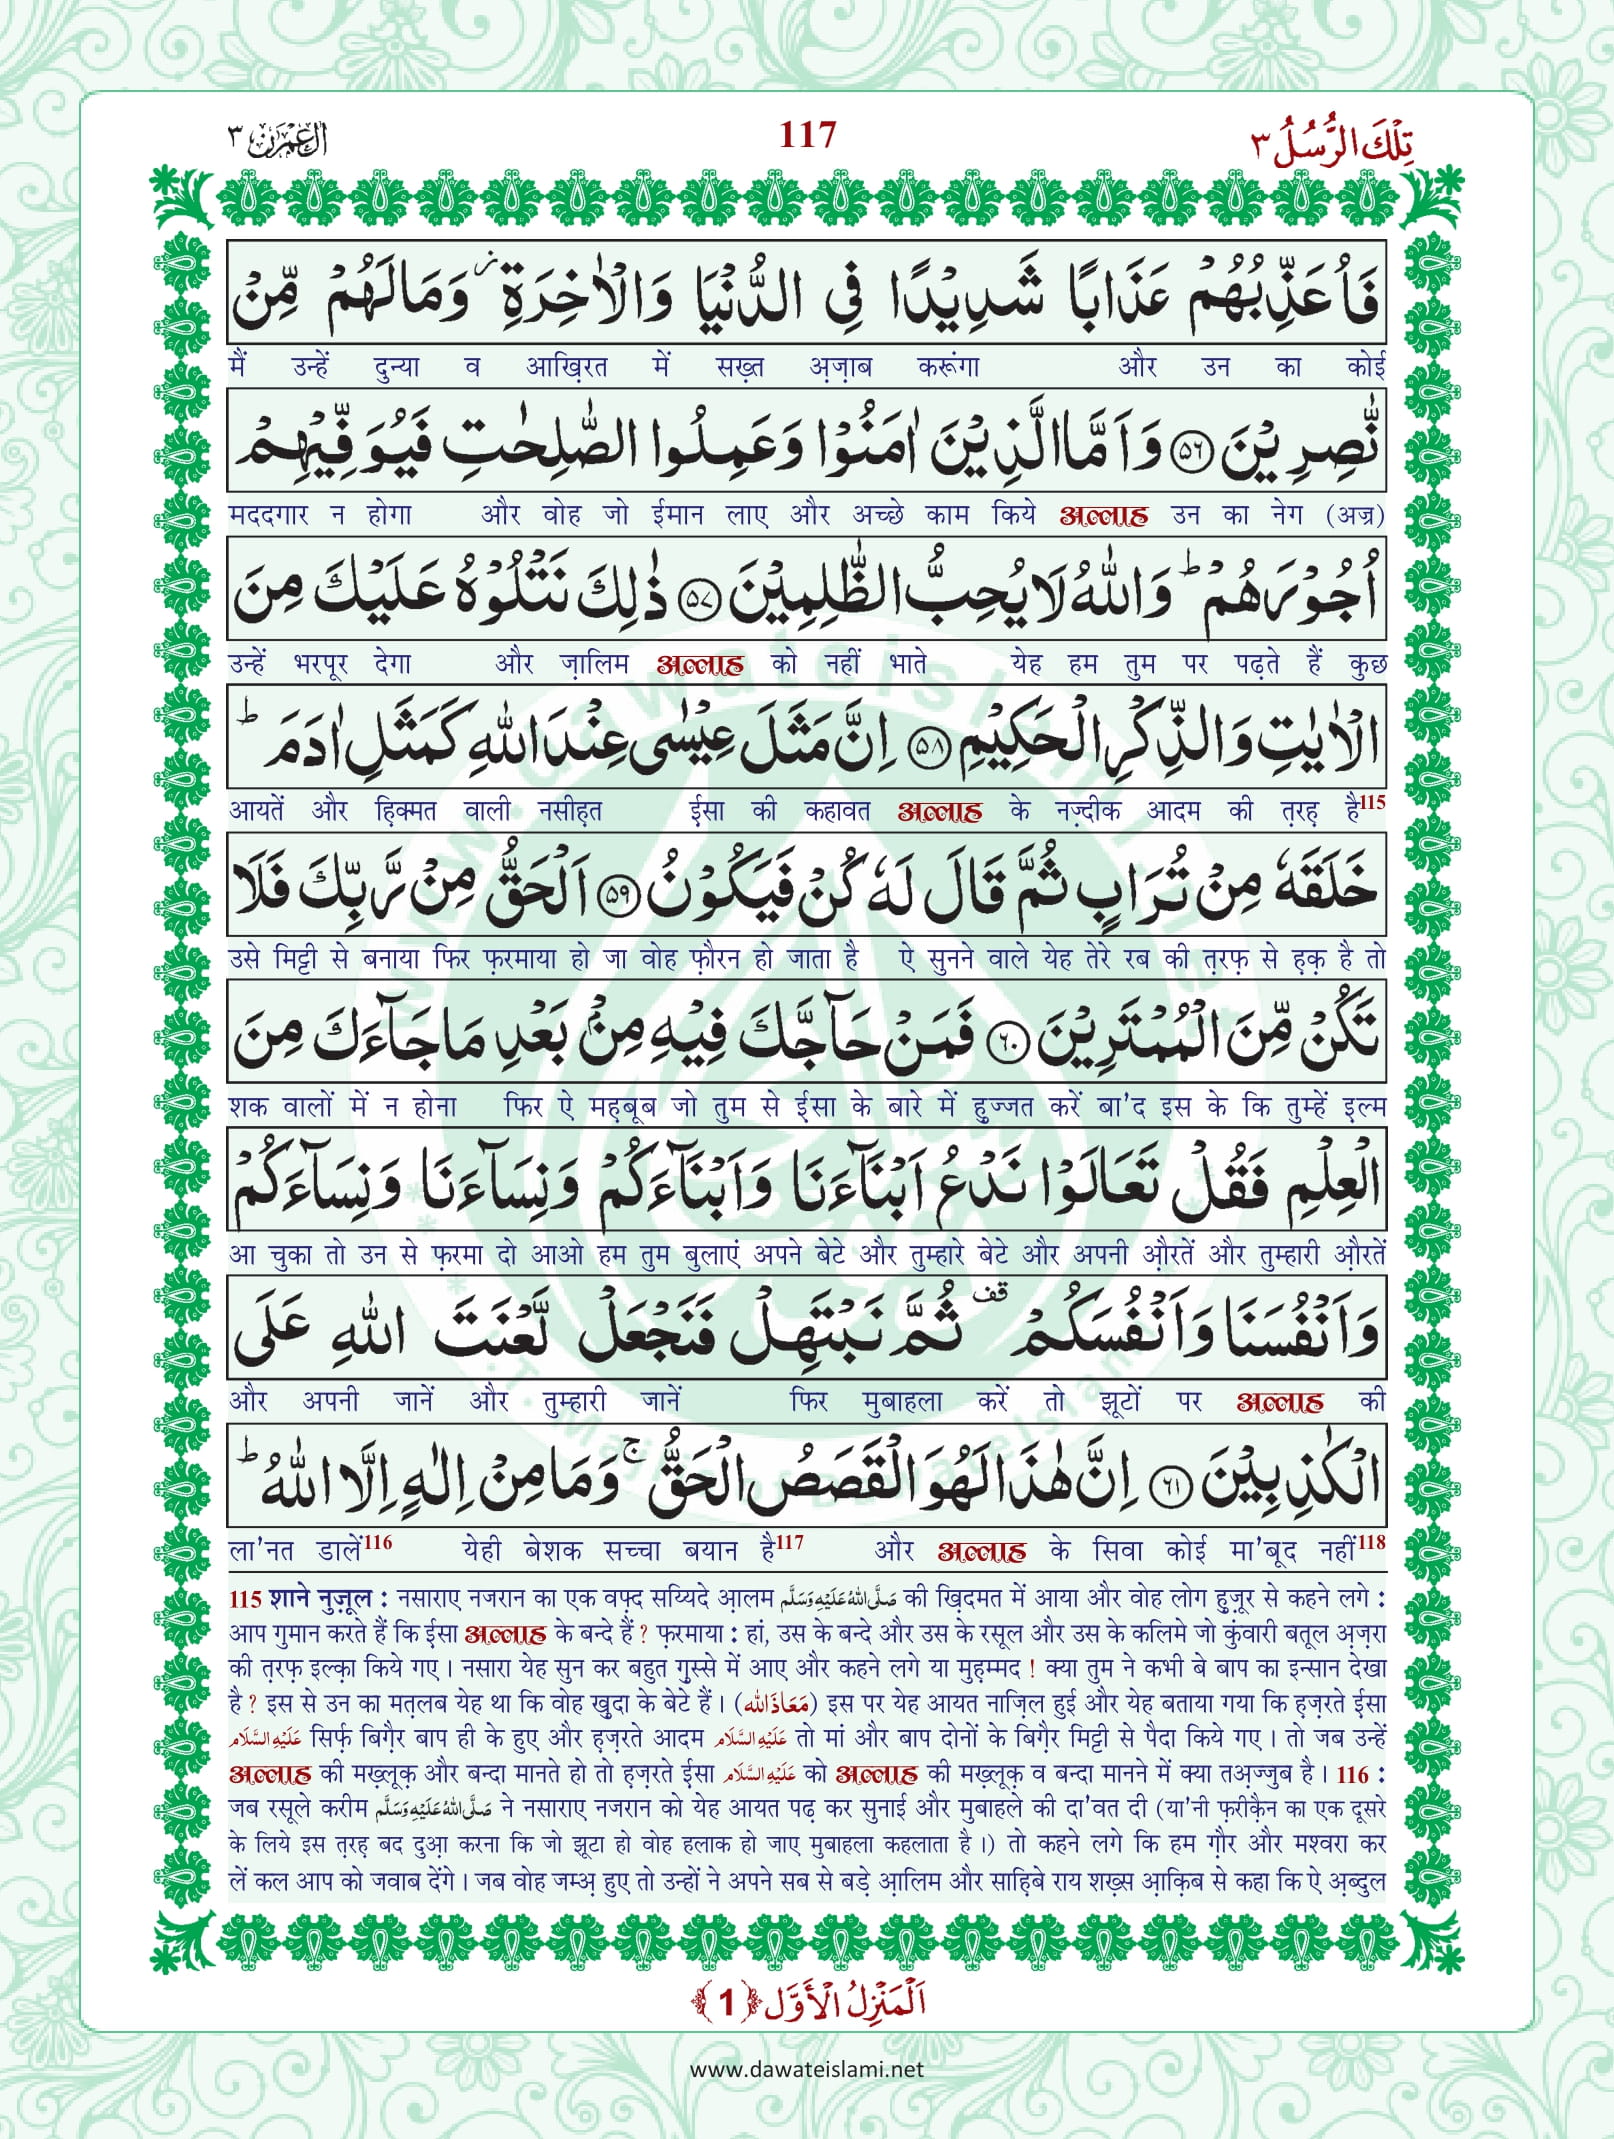 اٰل عمرٰن ٣
117
تِلْكَ الرُّسُلُ ٣
فَاُعَذِّبُهُمْ عَذَابًا شَدِیْدًا فِی الدُّنْیَا وَالْاٰخِرَةِ ؗ وَمَا لَهُمْ مِّنْ
मैं उन्हें दुन्या व आख़िरत में सख़्त अ़ज़ाब करूंगा और उन का कोई
نّٰصِرِیْنَ ﴿٥٦﴾ وَاَمَّا الَّذِیْنَ اٰمَنُوْا وَعَمِلُوا الصّٰلِحٰتِ فَیُوَفِّیْهِمْ
मददगार न होगा और वोह जो ईमान लाए और अच्छे काम किये अल्लाह उन का नेग (अज्र)
اُجُوْرَهُمْ ؕ وَاللّٰهُ لَا یُحِبُّ الظّٰلِمِیْنَ ﴿٥٧﴾ ذٰلِكَ نَتْلُوْهُ عَلَیْكَ مِنَ
उन्हें भरपूर देगा और ज़ालिम अल्लाह को नहीं भाते येह हम तुम पर पढ़ते हैं कुछ
الْاٰیٰتِ وَالذِّكْرِ الْحَكِیْمِ ﴿٥٨﴾ اِنَّ مَثَلَ عِیْسٰى عِنْدَ اللّٰهِ كَمَثَلِ اٰدَمَ ؕ
आयतें और हि़क्मत वाली नसीह़त ईसा की कहावत अल्लाह के नज़्दीक आदम की त़रह़ है115
خَلَقَهٗ مِنْ تُرَابٍ ثُمَّ قَالَ لَهٗ كُنْ فَیَكُوْنُ ﴿٥٩﴾ اَلْحَقُّ مِنْ رَّبِّكَ فَلَا
उसे मिट्टी से बनाया फिर फ़रमाया हो जा वोह फ़ौरन हो जाता है ऐ सुनने वाले येह तेरे रब की त़रफ़ से ह़क़ है तो
تَكُنْ مِّنَ الْمُمْتَرِیْنَ ﴿٦٠﴾ فَمَنْ حَآجَّكَ فِیْهِ مِنْۢ بَعْدِ مَا جَآءَكَ مِنَ
शक वालों में न होना फिर ऐ मह़बूब जो तुम से ईसा के बारे में हु़ज्जत करें बा'द इस के कि तुम्हें इल्म
الْعِلْمِ فَقُلْ تَعَالَوْا نَدْعُ اَبْنَآءَنَا وَاَبْنَآءَكُمْ وَنِسَآءَنَا وَنِسَآءَكُمْ
आ चुका तो उन से फ़रमा दो आओ हम तुम बुलाएं अपने बेटे और तुम्हारे बेटे और अपनी औ़रतें और तुम्हारी औ़रतें
وَاَنْفُسَنَا وَاَنْفُسَكُمْ قف ثُمَّ نَبْتَهِلْ فَنَجْعَلْ لَّعْنَتَ اللّٰهِ عَلَى
और अपनी जानें और तुम्हारी जानें फिर मुबाहला करें तो झूटों पर अल्लाह की
الْكٰذِبِیْنَ ﴿٦١﴾ اِنَّ هٰذَا لَهُوَ الْقَصَصُ الْحَقُّ ۚ وَمَا مِنْ اِلٰهٍ اِلَّا اللّٰهُ ؕ
ला'नत डालें116 येही बेशक सच्चा बयान है117 और अल्लाह के सिवा कोई मा'बूद नहीं118
115 शाने नुज़ूल : नसाराए नजरान का एक वफ़्द सय्यिदे आ़लम صَلَّى اللهُ عَلَيْهِ وَسَلَّم की ख़िदमत में आया और वोह लोग हु़ज़ूर से कहने लगे :
आप गुमान करते हैं कि ईसा अल्लाह के बन्दे हैं ? फ़रमाया : हां, उस के बन्दे और उस के रसूल और उस के कलिमे जो कुंवारी बतूल अ़ज़रा
की त़रफ़ इल्क़ा किये गए । नसारा येह सुन कर बहुत ग़ुस्से में आए और कहने लगे या मुह़म्मद ! क्या तुम ने कभी बे बाप का इन्सान देखा
है ? इस से उन का मत़लब येह था कि वोह ख़ुदा के बेटे हैं । (مَعَاذَ الله) इस पर येह आयत नाज़िल हुई और येह बताया गया कि ह़ज़रते ईसा
عَلَيْهِ السَّلَام सिर्फ़ बिग़ैर बाप ही के हुए और ह़ज़रते आदम عَلَيْهِ السَّلَام तो मां और बाप दोनों के बिग़ैर मिट्टी से पैदा किये गए । तो जब उन्हें
अल्लाह की मख़्लूक़ और बन्दा मानते हो तो ह़ज़रते ईसा عَلَيْهِ السَّلَام को अल्लाह की मख़्लूक़ व बन्दा मानने में क्या तअ़ज्जुब है । 116 :
जब रसूले करीम صَلَّى اللهُ عَلَيْهِ وَسَلَّم ने नसाराए नजरान को येह आयत पढ़ कर सुनाई और मुबाहले की दा'वत दी (या'नी फ़रीक़ैन का एक दूसरे
के लिये इस त़रह़ बद दुआ़ करना कि जो झूटा हो वोह हलाक हो जाए मुबाहला कहलाता है ।) तो कहने लगे कि हम ग़ौर और मश्वरा कर
लें कल आप को जवाब देंगे । जब वोह जम्अ़ हुए तो उन्हों ने अपने सब से बड़े आ़लिम और साहि़बे राय शख़्स आ़क़िब से कहा कि ऐ अ़ब्दुल
اَلْمَنْزِلُ الْاَوَّل ﴿1﴾
www.dawateislami.net